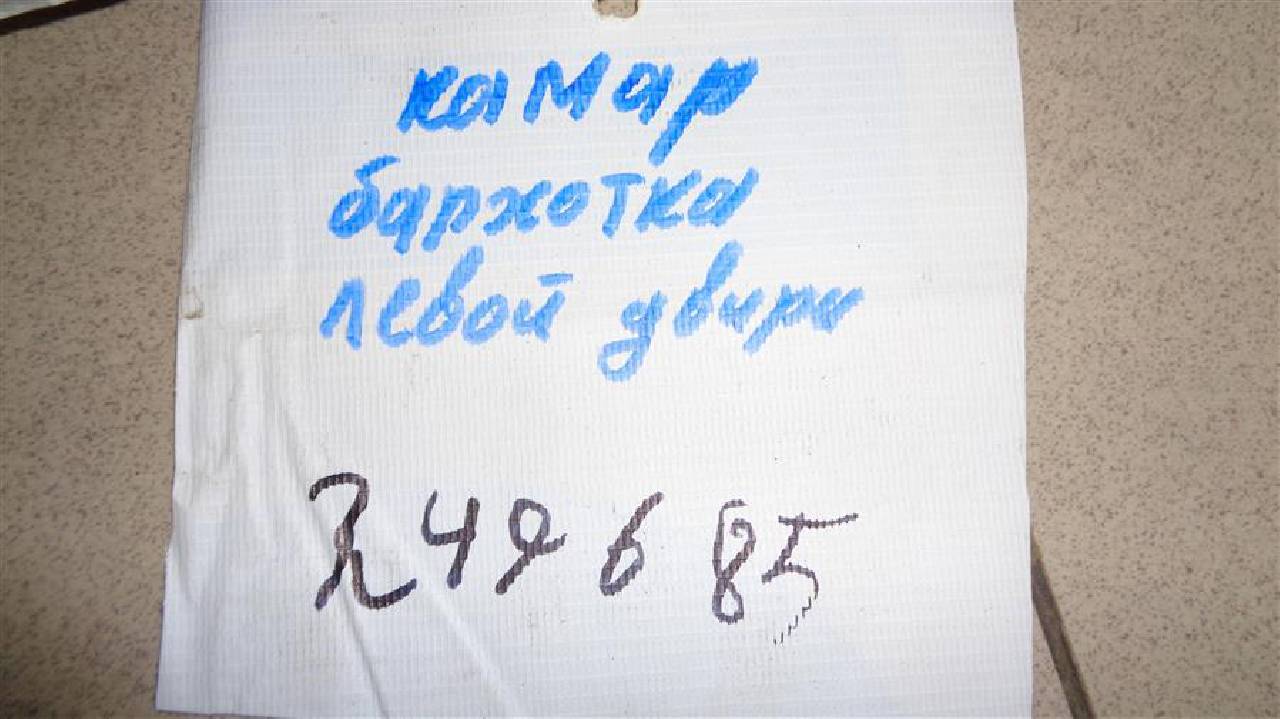 камар
бархотка
левой двири
249685